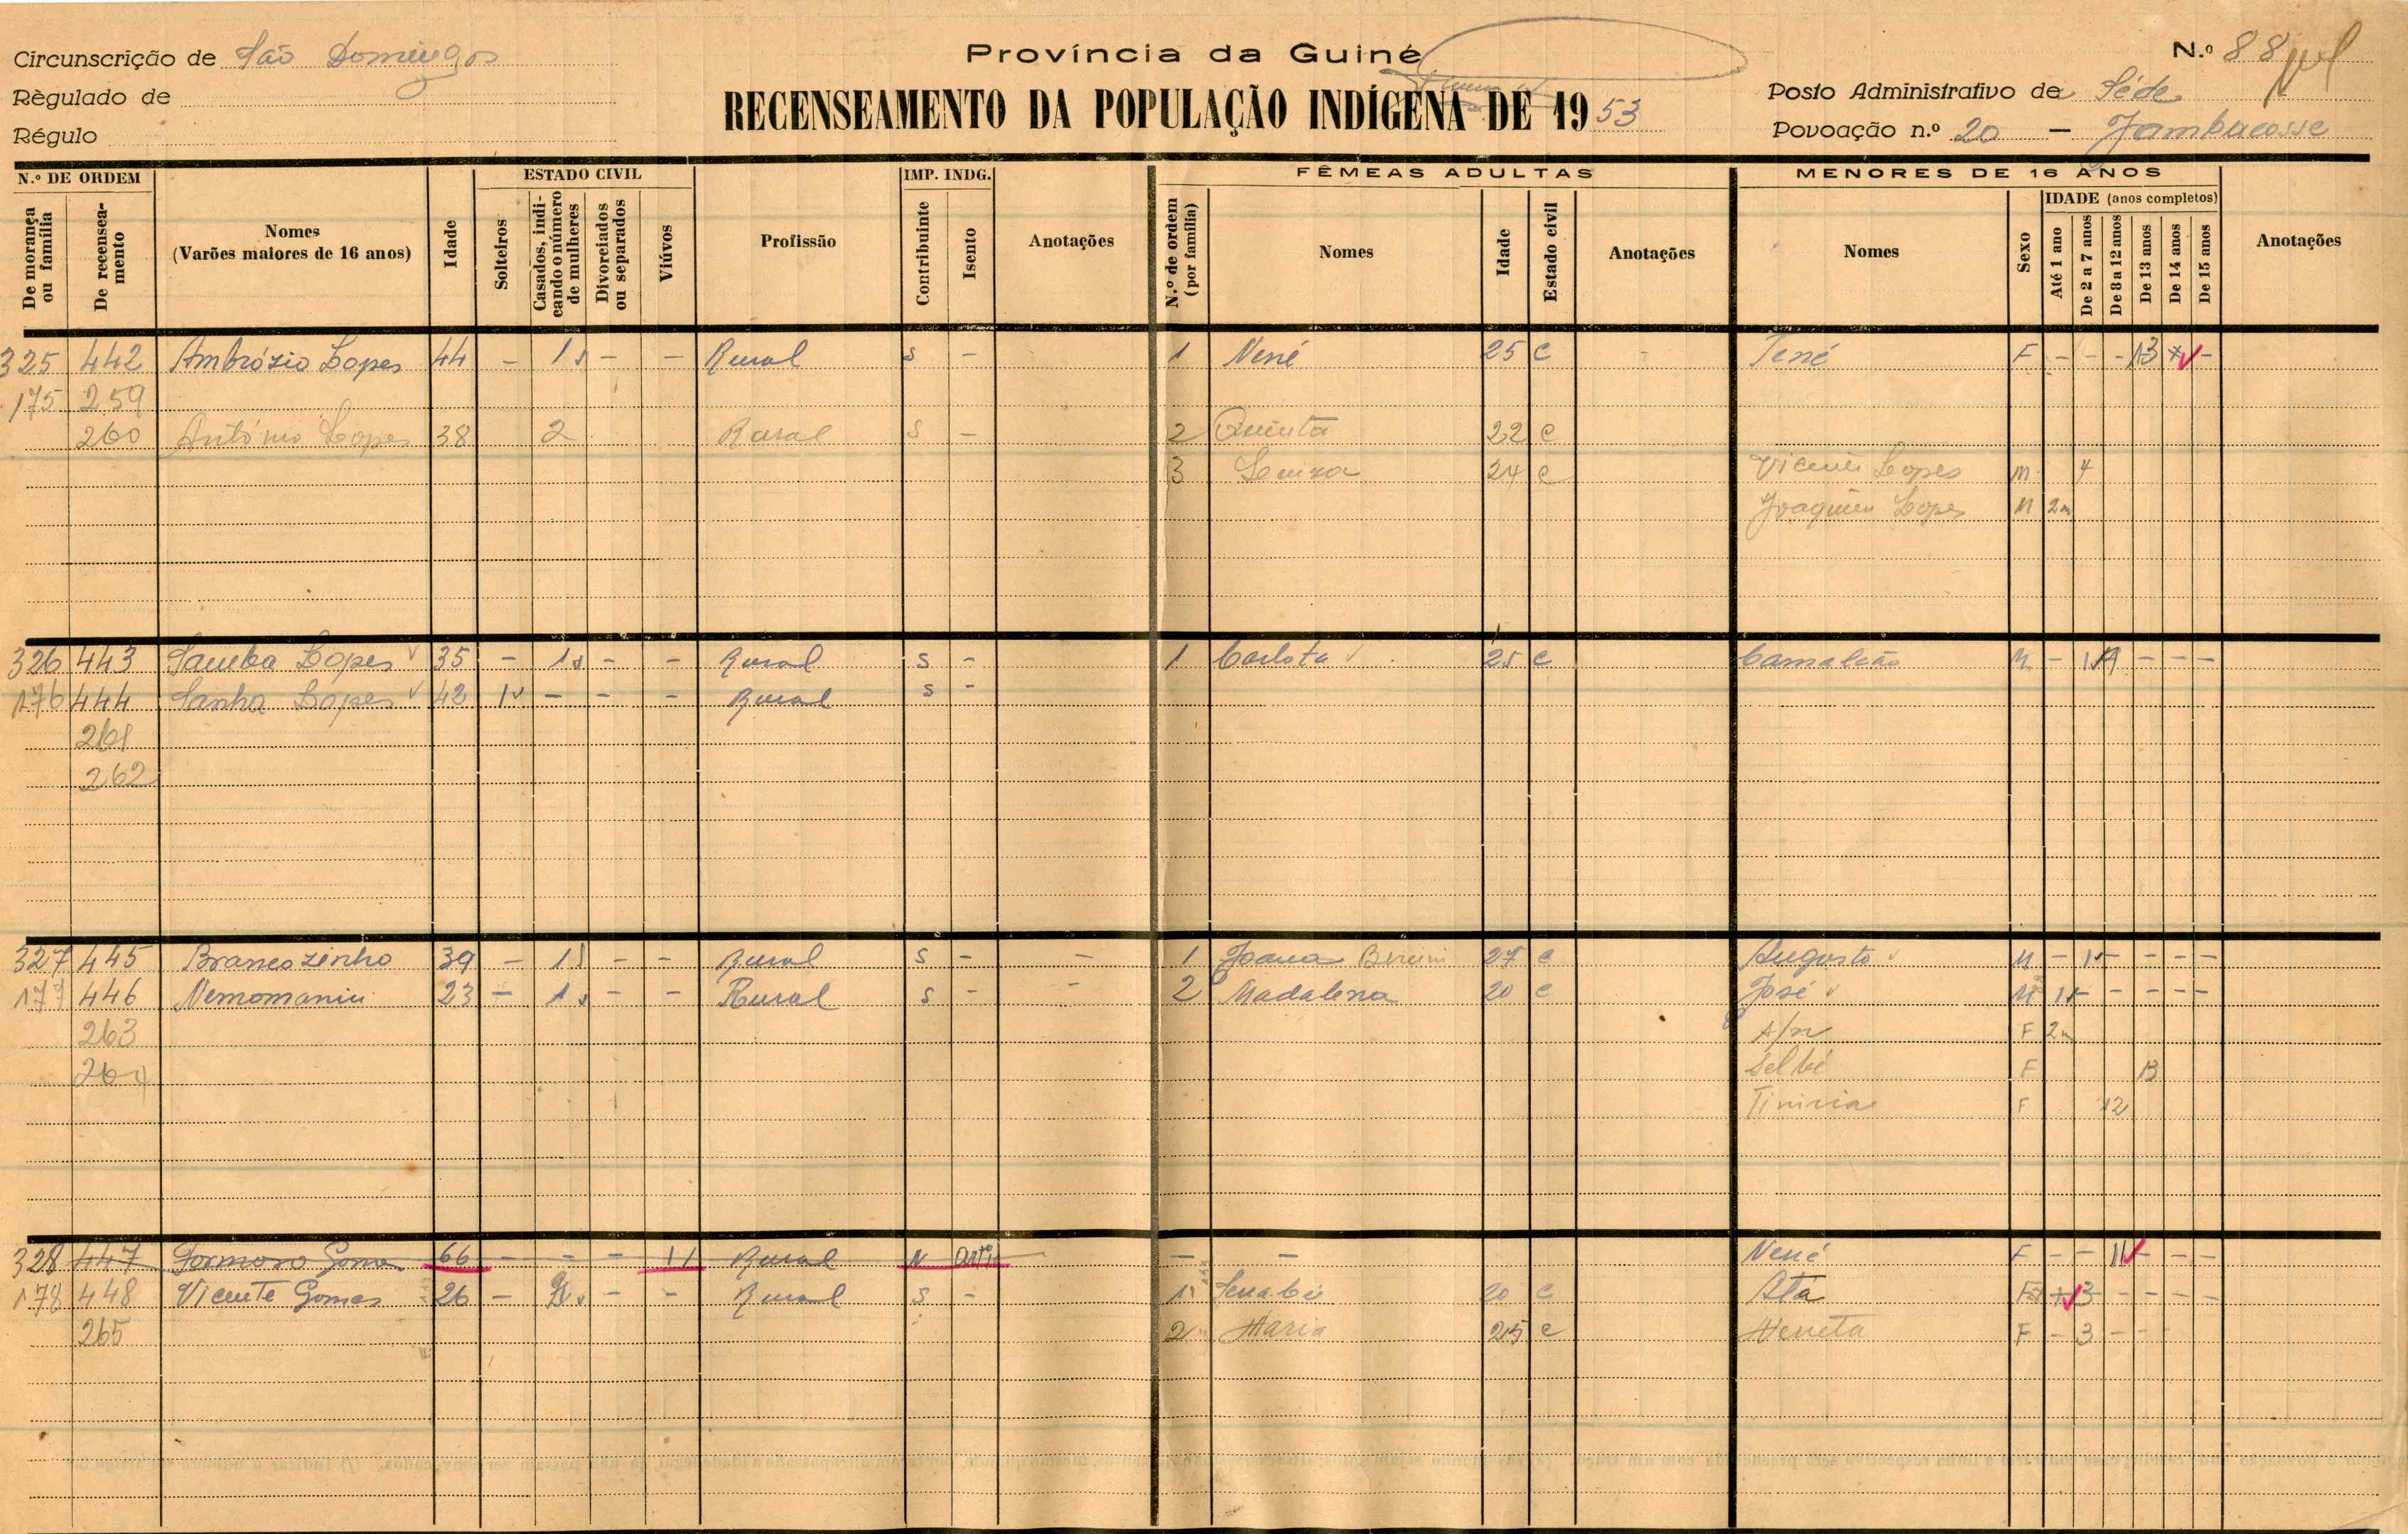 Província da Guiné
RECENSEAMENTO DA POPULAÇÃO INDÍGENA DE 1953
Circunscrição de São Domingos
Règulado de
Régulo
N.º 88
Posto Administrativo de Séde
Povoação n.º 20 — Jambacosse
N.º DE ORDEM
De morança ou família
De recenseamento
Nomes (Varões maiores de 16 anos)
Idade
ESTADO CIVIL
Solteiros
Casados, indicando o número de mulheres
Divorciados ou separados
Viúvos
Profissão
IMP. INDG.
Contribuinte
Isento
Anotações
FÊMEAS ADULTAS
N.º de ordem (por família)
Nomes
Idade
Estado civil
Anotações
MENORES DE 16 ANOS
Nomes
Sexo
IDADE (anos completos)
Até 1 ano
De 2 a 7 anos
De 8 a 12 anos
De 13 anos
De 14 anos
De 15 anos
Anotações
325 442 Ambrózio Lopes 44 - 1 - - Rural S - 1 Nené 25 C - Tené F - - - 13 -
175 259
260 António Lopes 38 2 Rural S - 2 Quinta 22 C
3 24 C Vicente Lopes M 4
Joaquim Lopes M 2m
326 443 Samba Lopes 35 - 1 - - Rural S - 1 Carlota 25 C Camaleão M - - - -
176 444 Sanha Lopes 42 1 - - - Rural S -
261
262
327 445 Brancozinho 39 - 1 - - Rural S - - 1 Joana 27 C Augusto M - 1 - - - -
177 446 23 - 1 - - Rural S - - 2 Madalena 20 C José M 1 - - - - -
263 S/n F 2m
264 Selbé F 13
F 12
328 447 Formoso Gomes 66 - - - 1 Rural N - - Nené F - - 11 - - -
178 448 Vicente Gomes 26 - - - Rural S - 1 20 C Atá F 3 - - - -
265 2 Maria 25 C Neneta F - 3 - - -